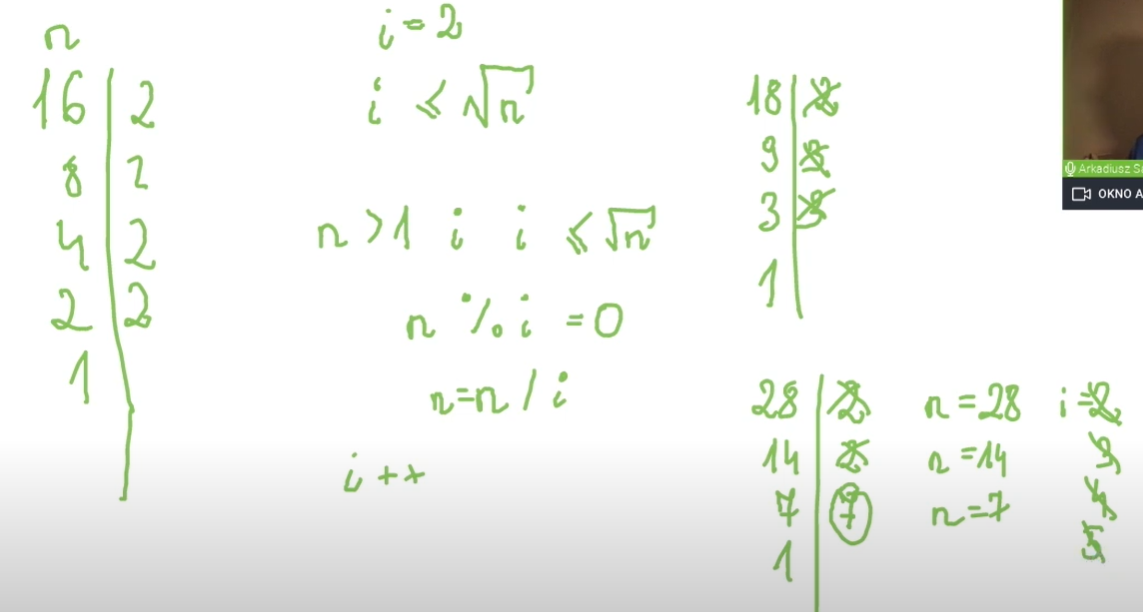 n
16 | 2
8 | 2
4 | 2
2 | 2
1
i = 2
i ≤ √n
n > 1 i i ≤ √n
n % i = 0
n = n / i
i ++
18 | 2
9 | 3
3 | 3
1
28 | 2
14 | 2
7 | 7
1
n = 28 i = 2
n = 14 3
n = 7 4
5
Arkadiusz
OKNO A